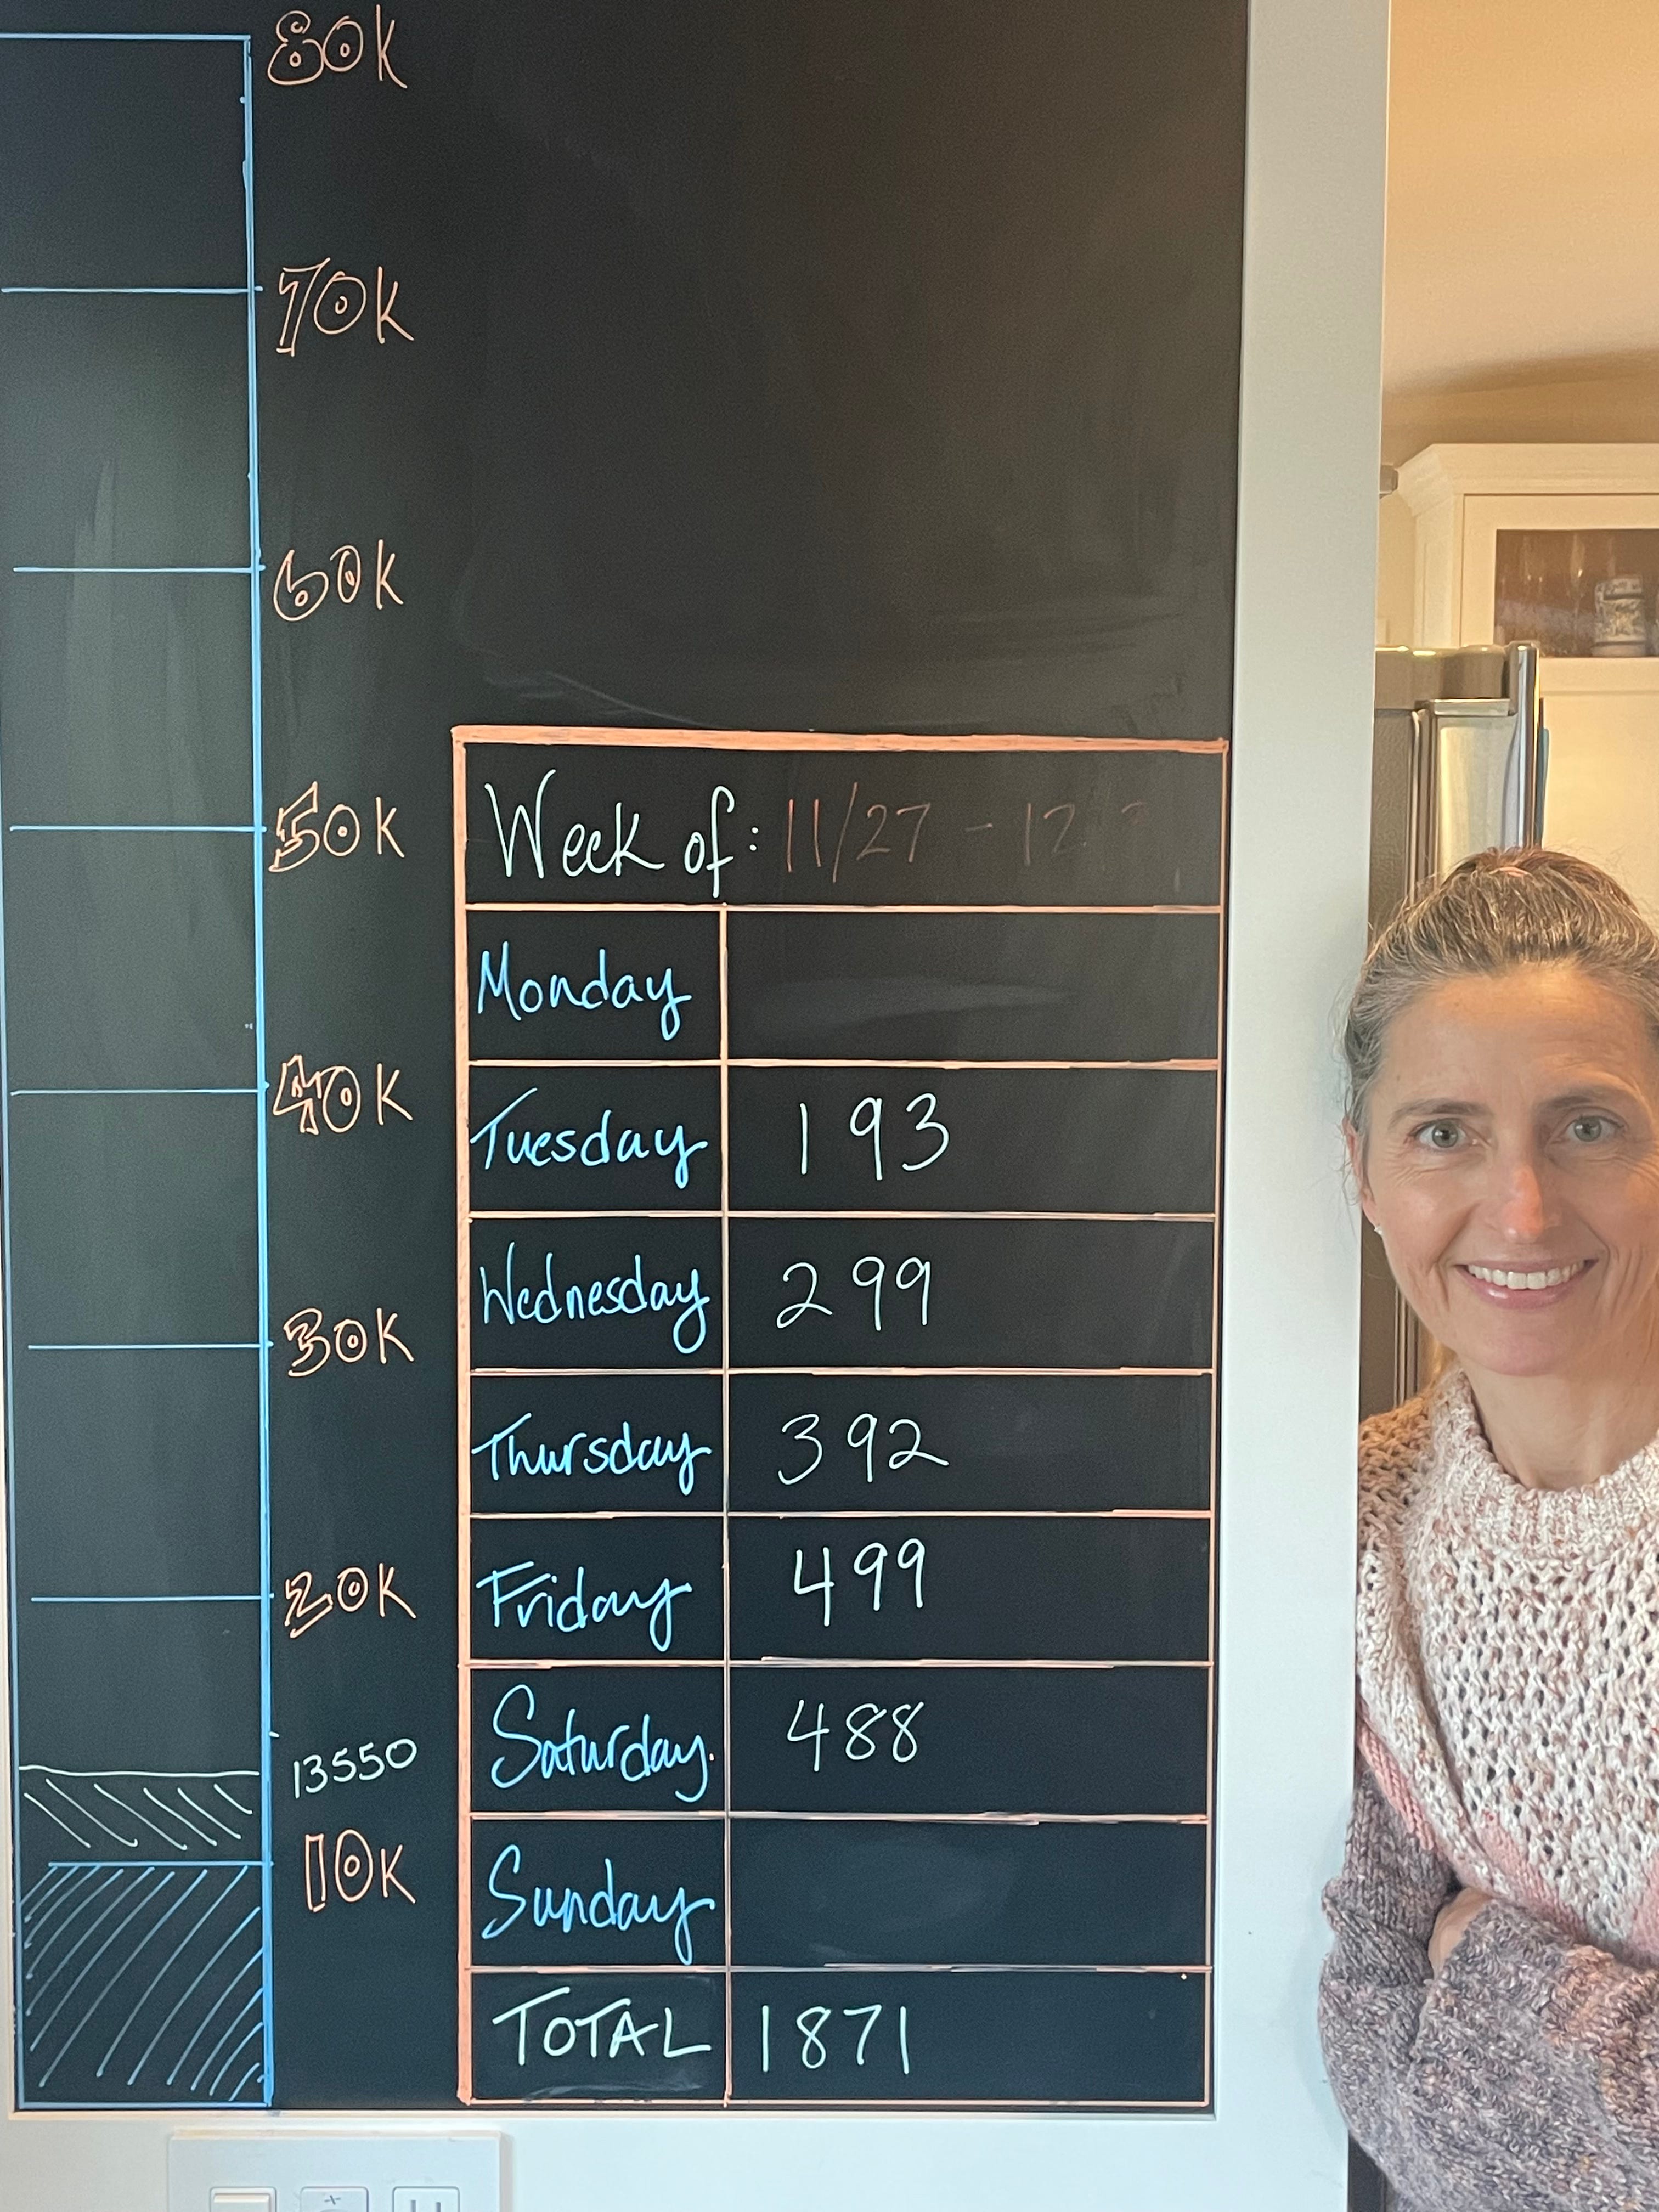 80K
70K
60K
50K
40K
30K
20K
13550
10K
Week of: 11/27 - 12
Monday
Tuesday 193
Wednesday 299
Thursday 392
Friday 499
Saturday 488
Sunday
TOTAL 1871